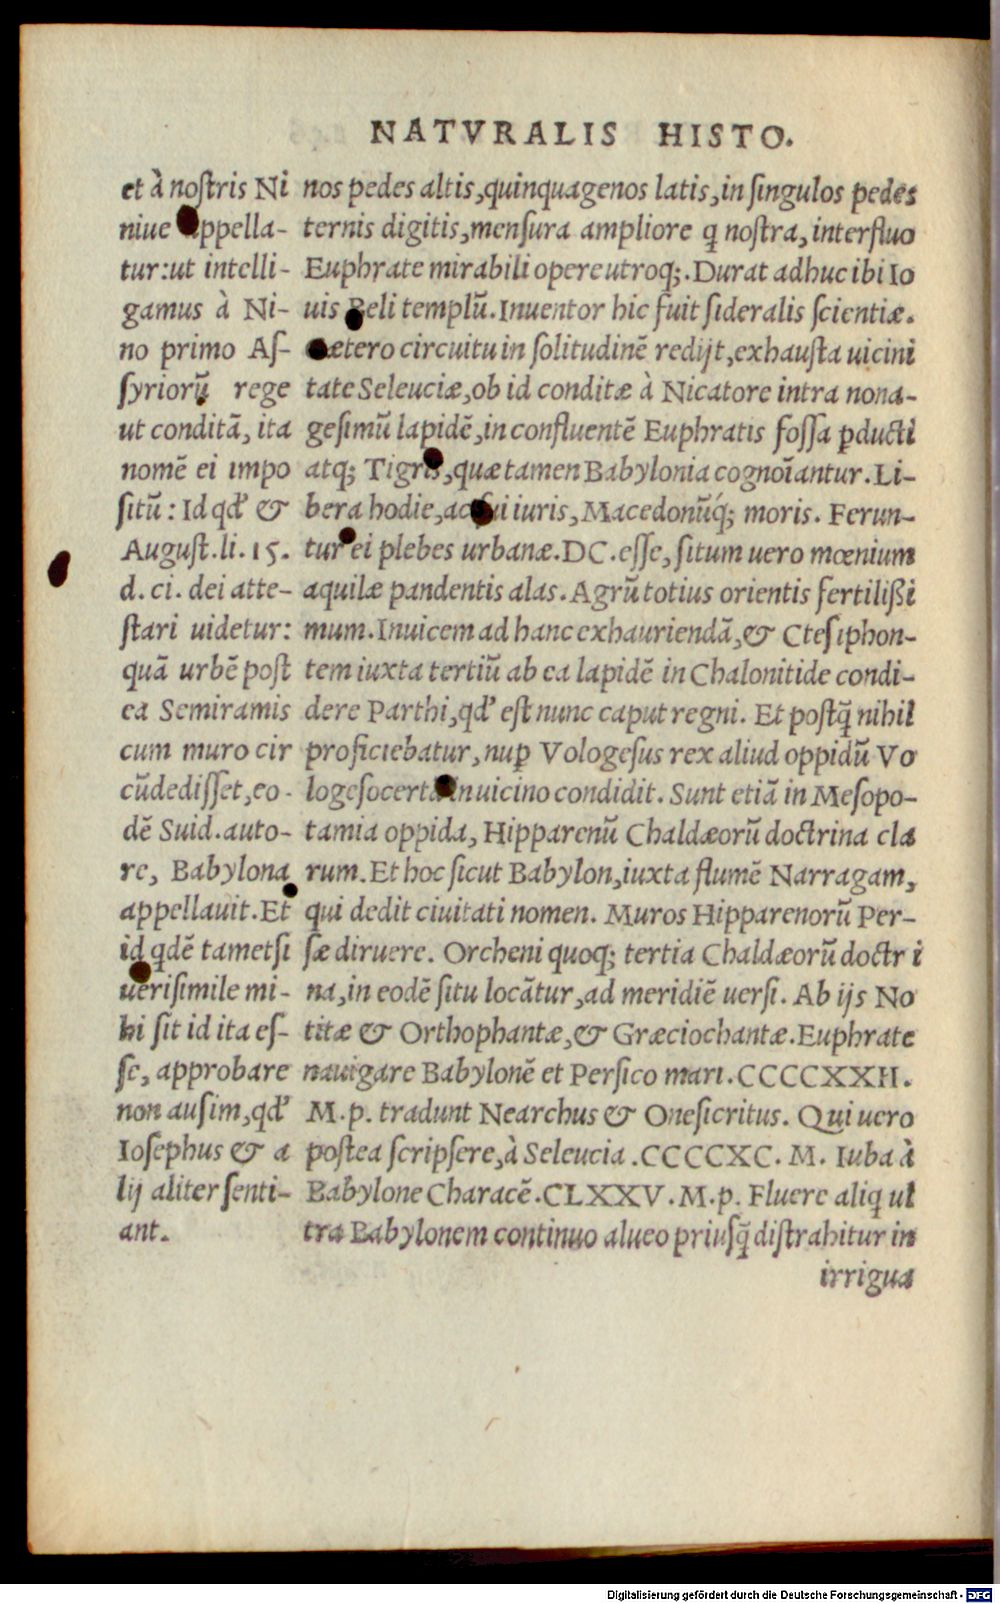 NATVRALIS HISTO.
et à nostris Ni
niue appella-
tur: ut intelli-
gamus à Ni-
no primo As-
syriorũ rege
ut conditã, ita
nomẽ ei impo
situ̅: Id qd' &
August. li. 15.
d. ci. dei atte-
stari uidetur:
quã urbẽ post
ea Semiramis
cum muro cir
cũdedisset, eo-
dẽ Suid. auto-
re, Babylona
appellauit. Et
id qdẽ tametsi
uerisimile mi-
hi sit id ita es-
se, approbare
non ausim, qd'
Iosephus & a
lij aliter senti-
ant.
nos pedes altis, quinquagenos latis, in singulos pedes
ternis digitis, mensura ampliore q̃ nostra, interfluo
Euphrate mirabili opere utroq;. Durat adhuc ibi Io
uis Beli templũ. Inuentor hic fuit sideralis scientiæ.
Cætero circuitu in solitudinẽ redijt, exhausta uicini
tate Seleuciæ, ob id conditæ à Nicatore intra nona-
gesimũ lapidẽ, in confluentẽ Euphratis fossa ꝑducti
atq; Tigris, quæ tamen Babylonia cognoĩantur. Li-
bera hodie, ac sui iuris, Macedonũq́; moris. Ferun-
tur ei plebes urbanæ. DC. esse, situm uero mœnium
aquilæ pandentis alas. Agrũ totius orientis fertilißi
mum. Inuicem ad hanc exhauriendã, & Ctesiphon-
tem iuxta tertiũ ab ea lapidẽ in Chalonitide condi-
dere Parthi, qd' est nunc caput regni. Et postq̃ nihil
proficiebatur, nuꝑ Vologesus rex aliud oppidũ Vo
logesocertã in uicino condidit. Sunt etiã in Mesopo-
tamia oppida, Hipparenũ Chaldæorũ doctrina cla
rum. Et hoc sicut Babylon, iuxta flumẽ Narragam,
qui dedit ciuitati nomen. Muros Hipparenorũ Per-
sæ diruere. Orcheni quoq; tertia Chaldæorũ doctri
na, in eodẽ situ locãtur, ad meridiẽ uersi. Ab ijs No
titæ & Orthophantæ, & Græciochantæ. Euphrate
nauigare Babylonẽ et Persico mari. CCCCXXII.
M. p. tradunt Nearchus & Onesicritus. Qui uero
postea scripsere, à Seleucia. CCCCXC. M. Iuba à
Babylone Characẽ. CLXXV. M. p. Fluere aliq̃ ul
tra Babylonem continuo alueo priusq̃ distrahitur in
irrigua
Digitalisierung gefördert durch die Deutsche Forschungsgemeinschaft - DFG